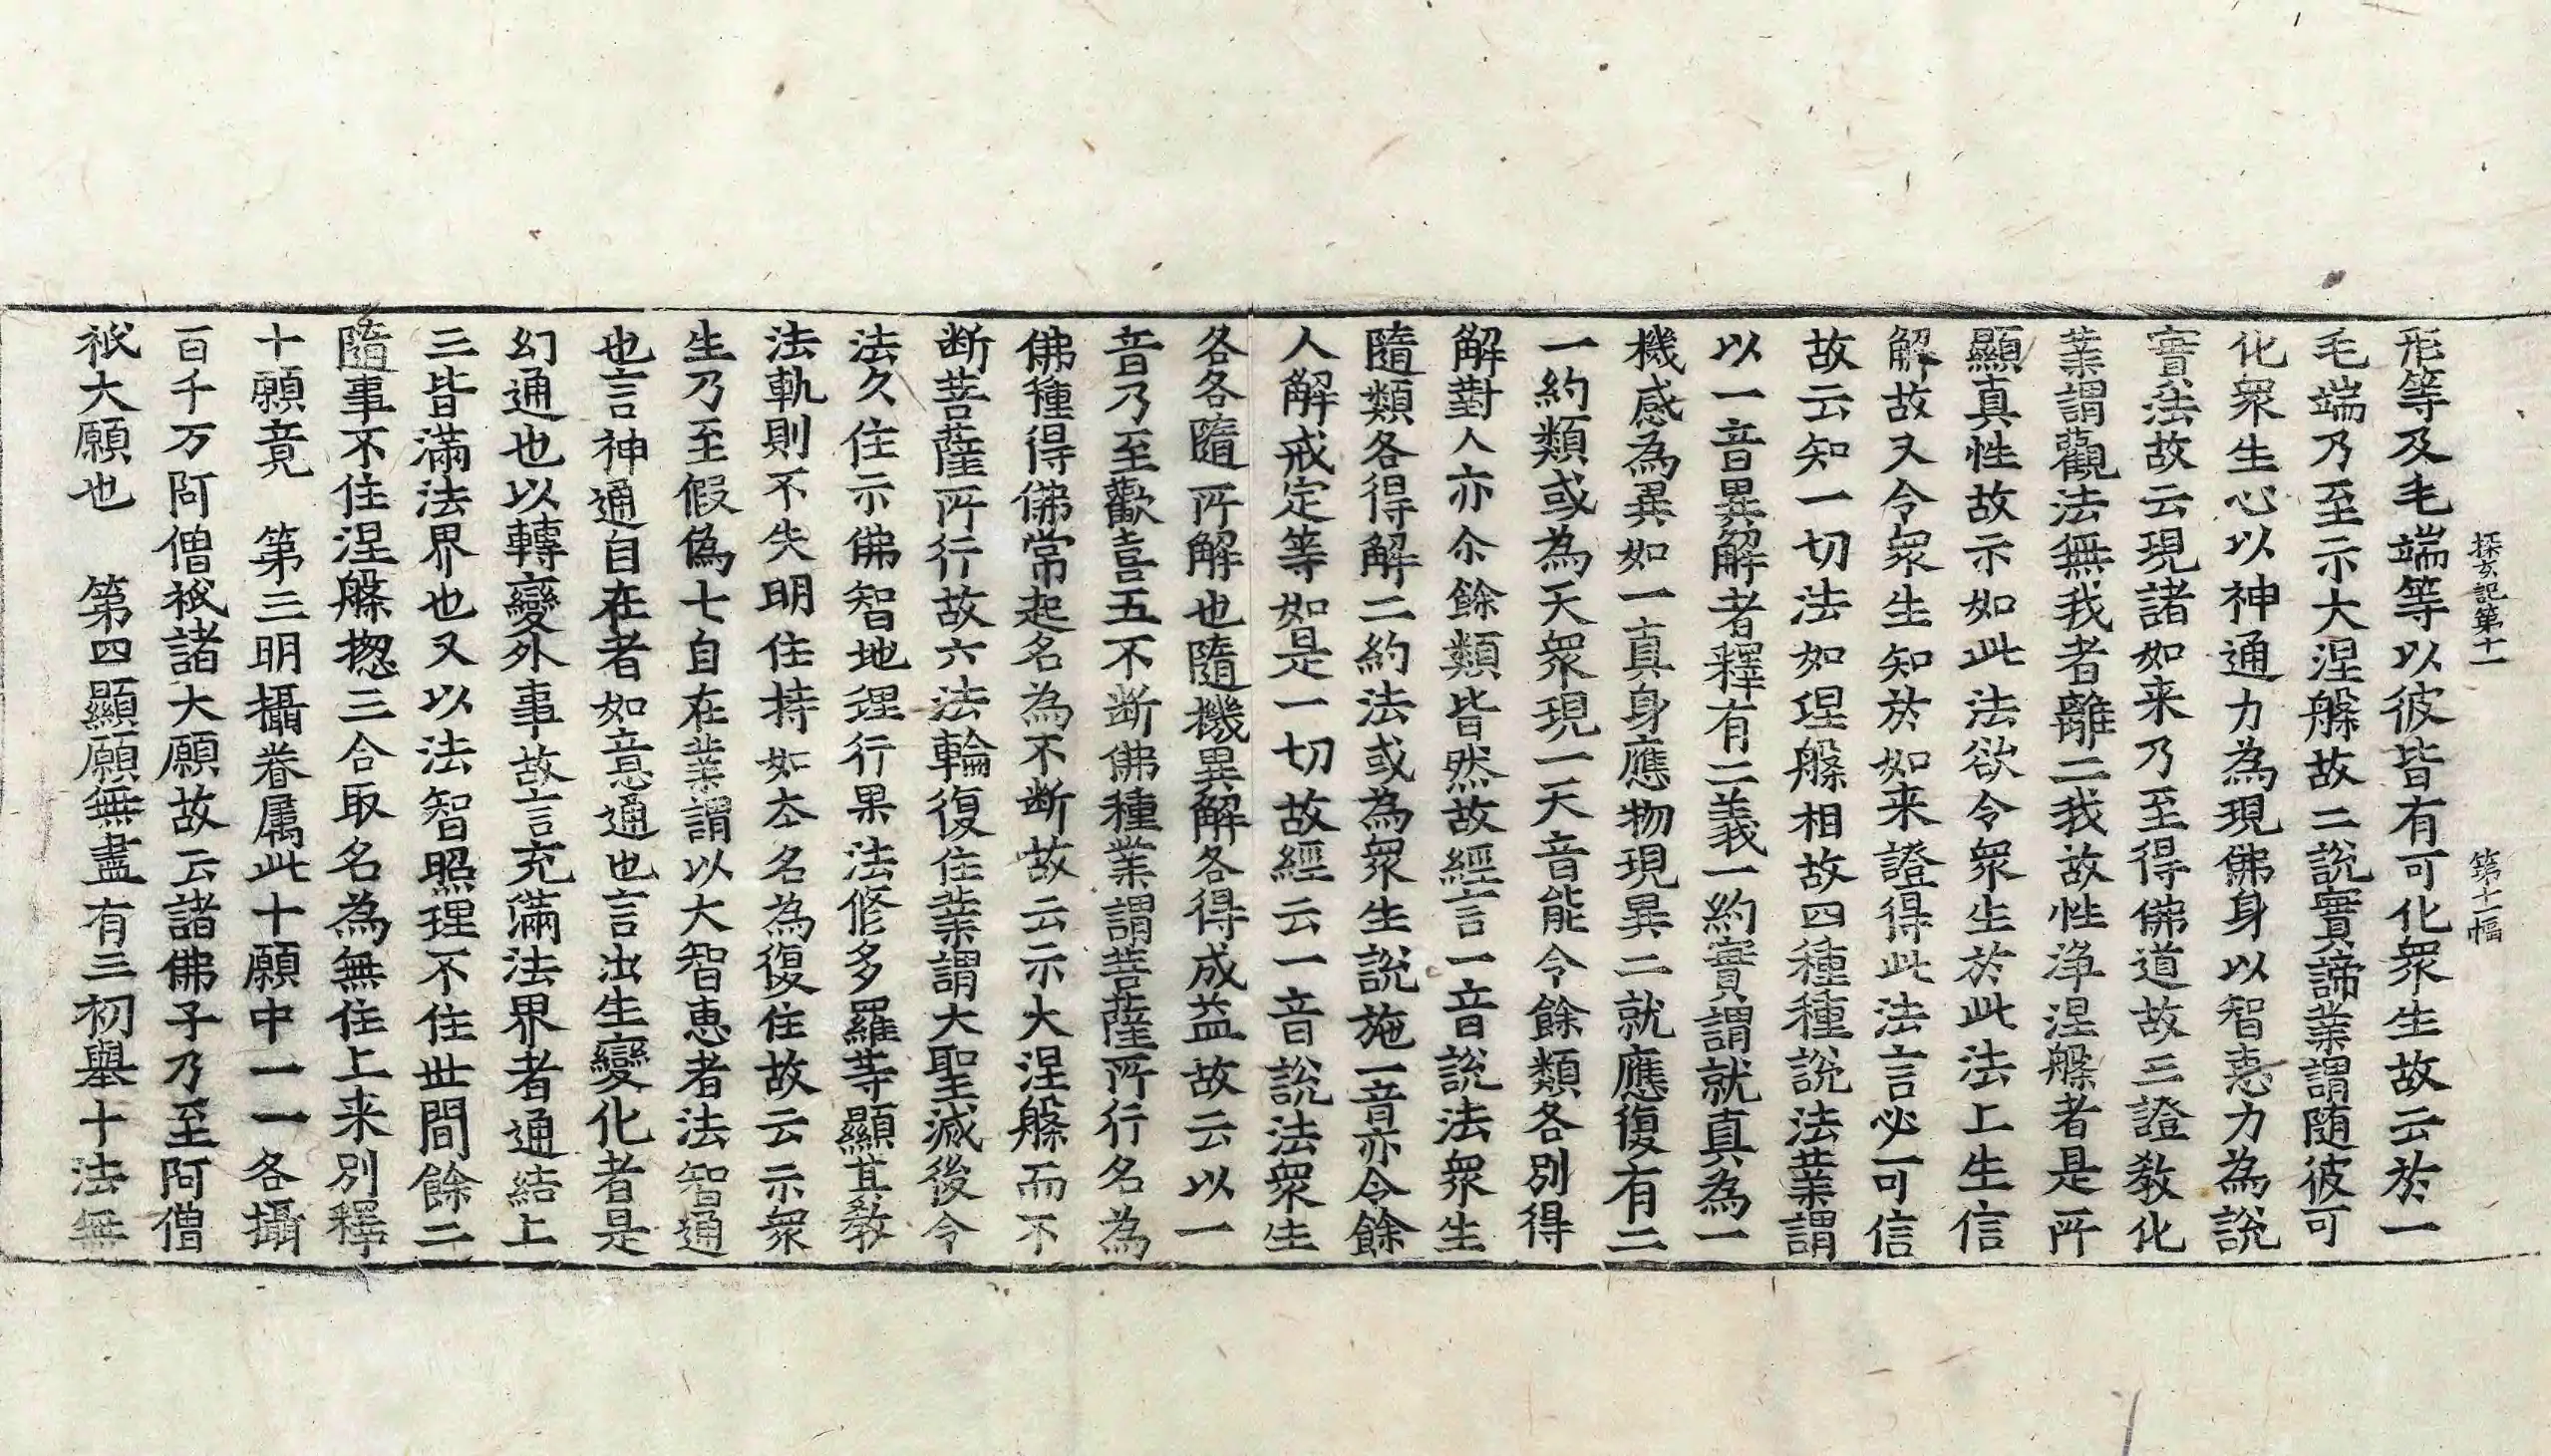 探玄記第十一 第十二幅
形等及毛端等以彼皆有可化衆生故云於一
毛端乃至示大涅槃故二說實諦業謂随彼可
化衆生心以神通力為現佛身以智恵力為說
實法故云現諸如来乃至得佛道故三證教化
業謂觀法無我者離二我故性淨涅槃者是所
顯真性故示如此法欲令衆生於此法上生信
解故又令衆生知於如来證得此法言必可信
故云知一切法如涅槃相故四種種說法業謂
以一音異解者釋有二義一約實謂就真為一
機感為異如一真身應物現異二就應復有二
一約類或為天衆現一天音能令餘類各別得
解對人亦尒餘類皆然故經言一音說法衆生
隨類各得解二約法或為衆生說施一音亦令餘
人解戒定等如是一切故經云一音說法衆生
各各隨所解也隨機異解各得成益故云以一
音乃至歡喜五不断佛種業謂菩薩所行名為
佛種得佛常起名為不断故云示大涅槃而不
断菩薩所行故六法輪復住業謂大聖滅後令
法久住示佛智地理行果法修多羅等顯其教
法軌則不失明住持如夲名為復住故云示衆
生乃至假偽七自在業謂以大智恵者法智通
也言神通自在者如意通也言出生變化者是
幻通也以轉變外事故言充滿法界者通結上
三皆滿法界也又以法智照理不住世間餘二
隨事不住涅槃揔三合取名為無住上来別釋
十願竟　第三明攝眷属此十願中一一各攝
百千万阿僧祇諸大願故云諸佛子乃至阿僧
祇大願也　第四顯願無盡有三初舉十法無